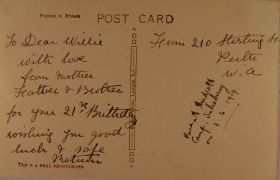 Printed in Britain
POST CARD
To Dear Willie
with love
from Mother
Father & Brother
for your 21st Birthday
wishing you good
luck & safe
Return
From 210 Stirling St
Perth
W.A
Camp
THIS IS A REAL PHOTOGRAPH